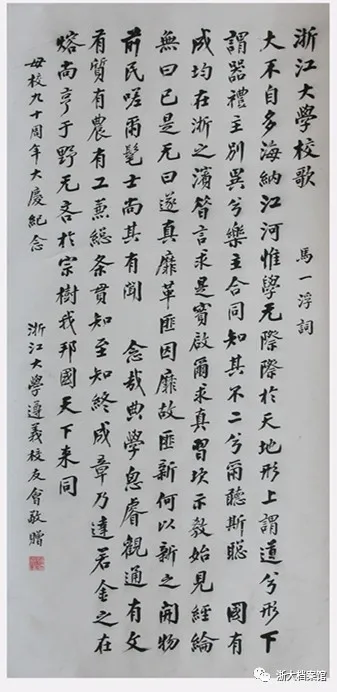 浙江大学校歌　馬一浮詞
大不自多海納江河惟學无際際於天地形上謂道兮形下
謂器禮主別異兮樂主合同知其不二兮爾聽斯聰　國有
成均在浙之濱昔言求是實啟爾求真習坎示教始見經綸
無曰已是无曰遂真靡革匪因靡故匪新何以新之開物
前民嗟爾髦士尚其有聞　念哉典學思睿觀通有文
有質有農有工兼總条貫知至知終成章乃達若金之在
熔尚亨于野无吝於宗樹我邦國天下来同
母校九十周年大慶紀念
浙江大學遵義校友會敬贈
浙大档案馆